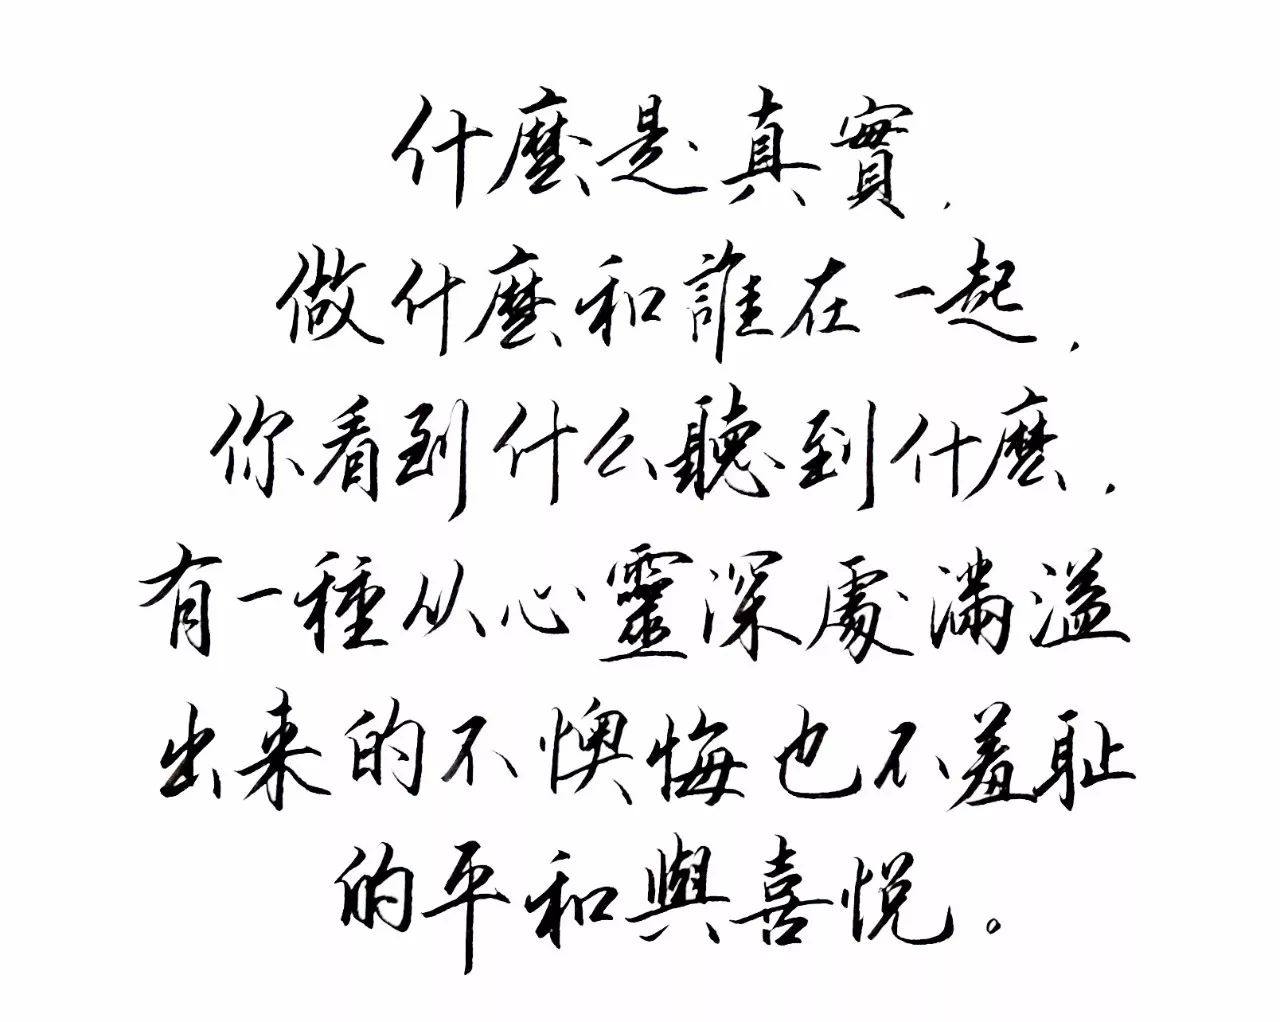 什麼是真實，
做什麼和誰在一起，
你看到什么聽到什麼，
有一種从心靈深處滿溢
出来的不懊悔也不羞耻
的平和與喜悦。